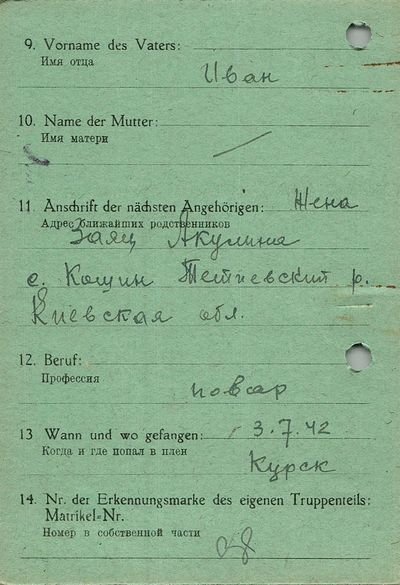 9. Vorname des Vaters:
Имя отца
Иван
10. Name der Mutter:
Имя матери
11. Anschrift der nächsten Angehörigen: Жена
Адрес ближайших родственников
Заяц Акулина
с. Кошин Тетиевский р.
Киевская обл.
12. Beruf:
Профессия
повар
13 Wann und wo gefangen: 3.7.42
Когда и где попал в плен
Курск
14. Nr. der Erkennungsmarke des eigenen Truppenteils:
Matrikel-Nr.
Номер в собственной части